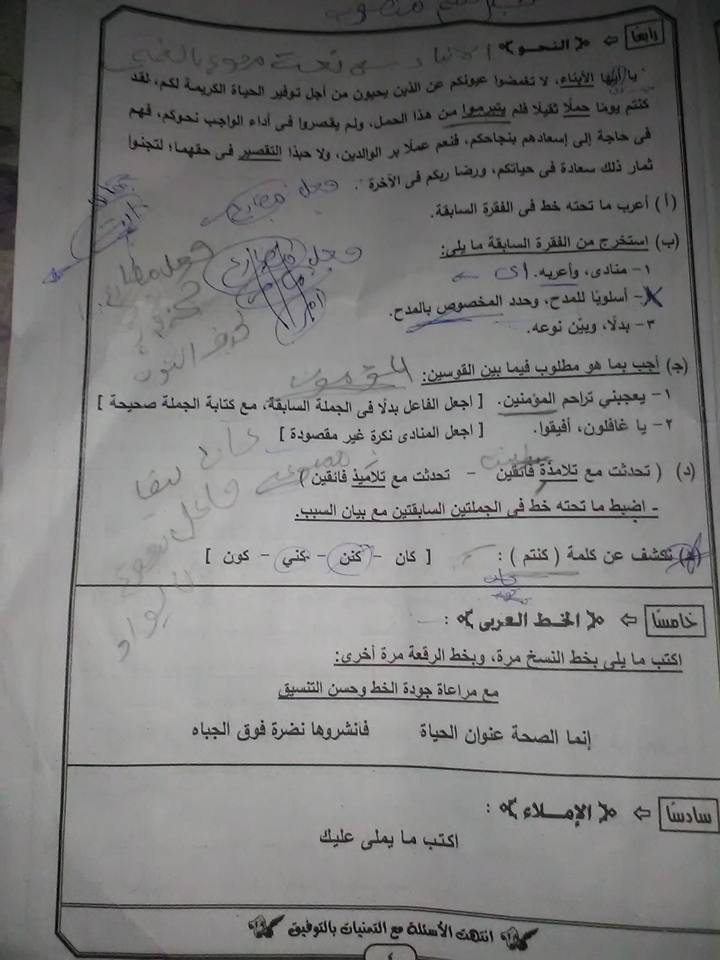 رابعًا ⇐ ﴿ النحو ﴾
يا أيها الأبناء، لا تغمضوا عيونكم عن الذين يحيون من أجل توفير الحياة الكريمة لكم، لقد
كنتم يومًا حملًا ثقيلا فلم يتبرموا من هذا الحمل، ولم يقصروا فى أداء الواجب نحوكم، فهم
فى حاجة إلى إسعادهم بنجاحكم، فنعم عملًا بر الوالدين، ولا حبذا التقصير فى حقهما؛ لتجنوا
ثمار ذلك سعادة فى حياتكم، ورضا ربكم فى الآخرة.
فعل مضارع
(أ) أعرب ما تحته خط فى الفقرة السابقة.
(ب) إستخرج من الفقرة السابقة ما يلى:
فعل مضارع
١- منادى، وأعربه. أى
فعل مضارع
٢- أسلوبًا للمدح، وحدد المخصوص بالمدح.
٣- بدلًا، وبيّن نوعه.
حذف النون
(ج) أجب بما هو مطلوب فيما بين القوسين:
١- يعجبني تراحم المؤمنين. [ اجعل الفاعل بدلًا فى الجملة السابقة، مع كتابة الجملة صحيحة ]
٢- يا غافلون، أفيقوا. [ اجعل المنادى نكرة غير مقصودة ]
(د) ( تحدثت مع تلامذة فائقين - تحدثت مع تلاميذ فائقين )
- اضبط ما تحته خط فى الجملتين السابقتين مع بيان السبب.
(هـ) نكشف عن كلمة ( كنتم ) : [ كان - كنن - كني - كون ]
خامسًا ⇐ ﴿ الخط العربى ﴾ :
اكتب ما يلى بخط النسخ مرة، وبخط الرقعة مرة أخرى:
مع مراعاة جودة الخط وحسن التنسيق
إنما الصحة عنوان الحياة فانشروها نضرة فوق الجباه
سادسًا ⇐ ﴿ الإملاء ﴾ :
اكتب ما يملى عليك
انتهت الأسئلة مع التمنيات بالتوفيق
٤